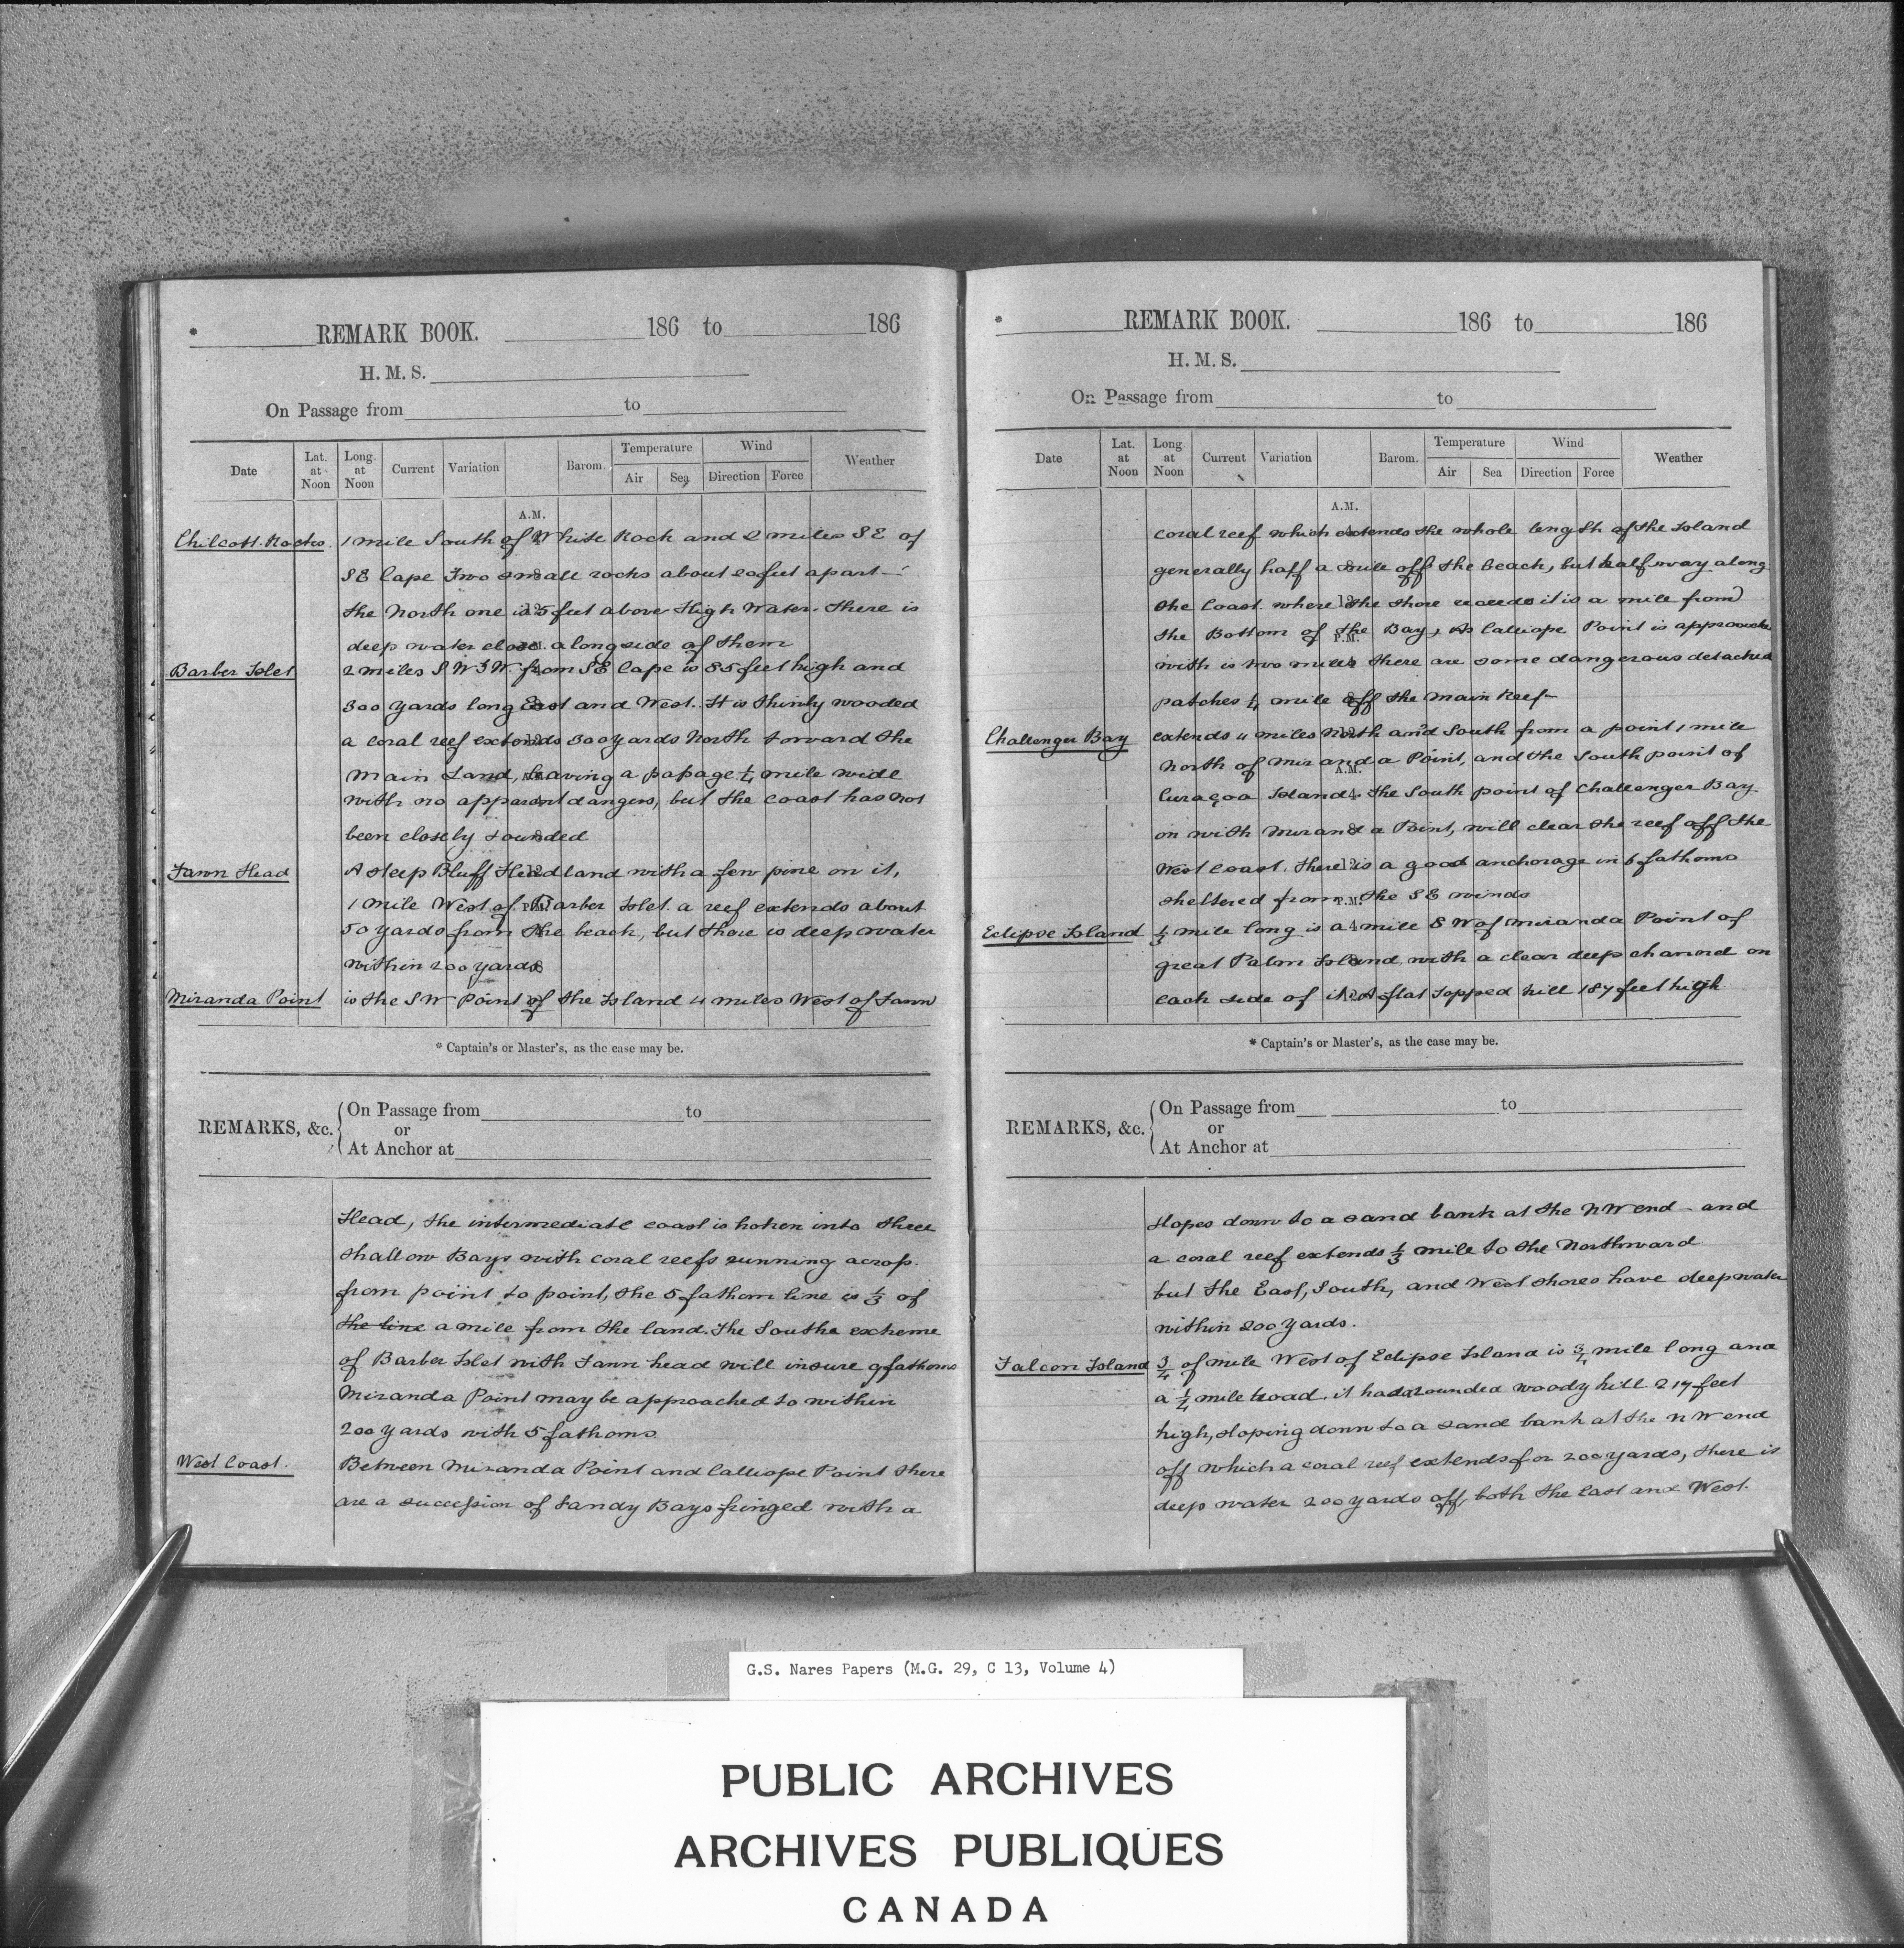 * REMARK BOOK. 186 to 186
H. M. S.
On Passage from to
Date Lat. at Noon Long. at Noon Current Variation Barom. Temperature Air Sea Wind Direction Force Weather
A.M.
Chilcott Rocks. 1 mile South of White Rock and 2 miles SE of
SE Cape Two small rocks about feet apart –
the North one is 5 feet above High Water. There is
deep water close alongside of them
Barber Islet 2 miles S W ¾ W. from SE Cape is 85 feet high and
300 yards long East and West. It is thinly wooded
a coral reef extends 300 yards North toward the
main Land, leaving a passage ¼ mile wide
with no apparent dangers, but the coast has not
been closely sounded
Fawn Head A steep Bluff Headland with a few pine on it,
1 mile West of Barber Islet a reef extends about
50 yards from the beach, but there is deep water
within 200 yards
Miranda Point is the SW Point of the Island 4 miles West of Fawn
* Captain's or Master's, as the case may be.
REMARKS, &c. On Passage from to
or
At Anchor at
Head, the intermediate coast is boken into three
shallow Bays with coral reefs running across
from point to point, the 5 fathom line is ⅓ of
the line a mile from the land. The Southe extreme
of Barber Islet with Fawn head will insure 9 fathoms
Miranda Point may be approached to within
200 yards with 5 fathoms
West Coast. Between Miranda Point and Calliope Point there
are a succession of Sandy Bays fringed with a
* REMARK BOOK. 186 to 186
H. M. S.
On Passage from to
Date Lat. at Noon Long at Noon Current Variation Barom. Temperature Air Sea Wind Direction Force Weather
A.M.
coral reef which extends the whole length of the Island
generally half a mile off the beach, but half way along
the Coast. where the shore recedes it is a mile from
the Bottom of the Bay, As Calliope Point is approach
with is two miles there are some dangerous detached
patches ¼ mile off the main Reef –
Challenger Bay extends 4 miles North and South from a point 1 mile
North of Miranda Point, and the South point of
Curaçoa Island. The South point of Challenger Bay
on with Miranda Point, will clear the reef off the
West Coast. There is a good anchorage in 6 fathoms
sheltered from the SE winds
Eclipse Island ⅓ mile long is a mile S W of Miranda Point of
great Palm Island with a clear deep channel on
each side of it. A flat topped hill 187 feet high
* Captain's or Master's, as the case may be.
REMARKS, &c. On Passage from to
or
At Anchor at
slopes down to a sand bank at the NW end – and
a coral reef extends ⅓ mile to the Northward
but the East, South, and West shores have deep water
within 200 yards.
Falcon Island ¾ of mile West of Eclipse Island is ¾ mile long and
a ¼ mile broad. it has a rounded woody hill 217 feet
high, sloping down to a sand bank at the NW end
off which a coral reef extends for 200 yards, there is
deep water 200 yards off, both the East and West.
G.S. Nares Papers (M.G. 29, C 13, Volume 4)
PUBLIC ARCHIVES
ARCHIVES PUBLIQUES
CANADA